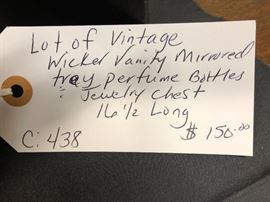 Lot of Vintage
Wicker Vanity Mirrored
tray perfume Bottles
: Jewelry Chest
16 1/2 Long
C: 438 $ 150.00